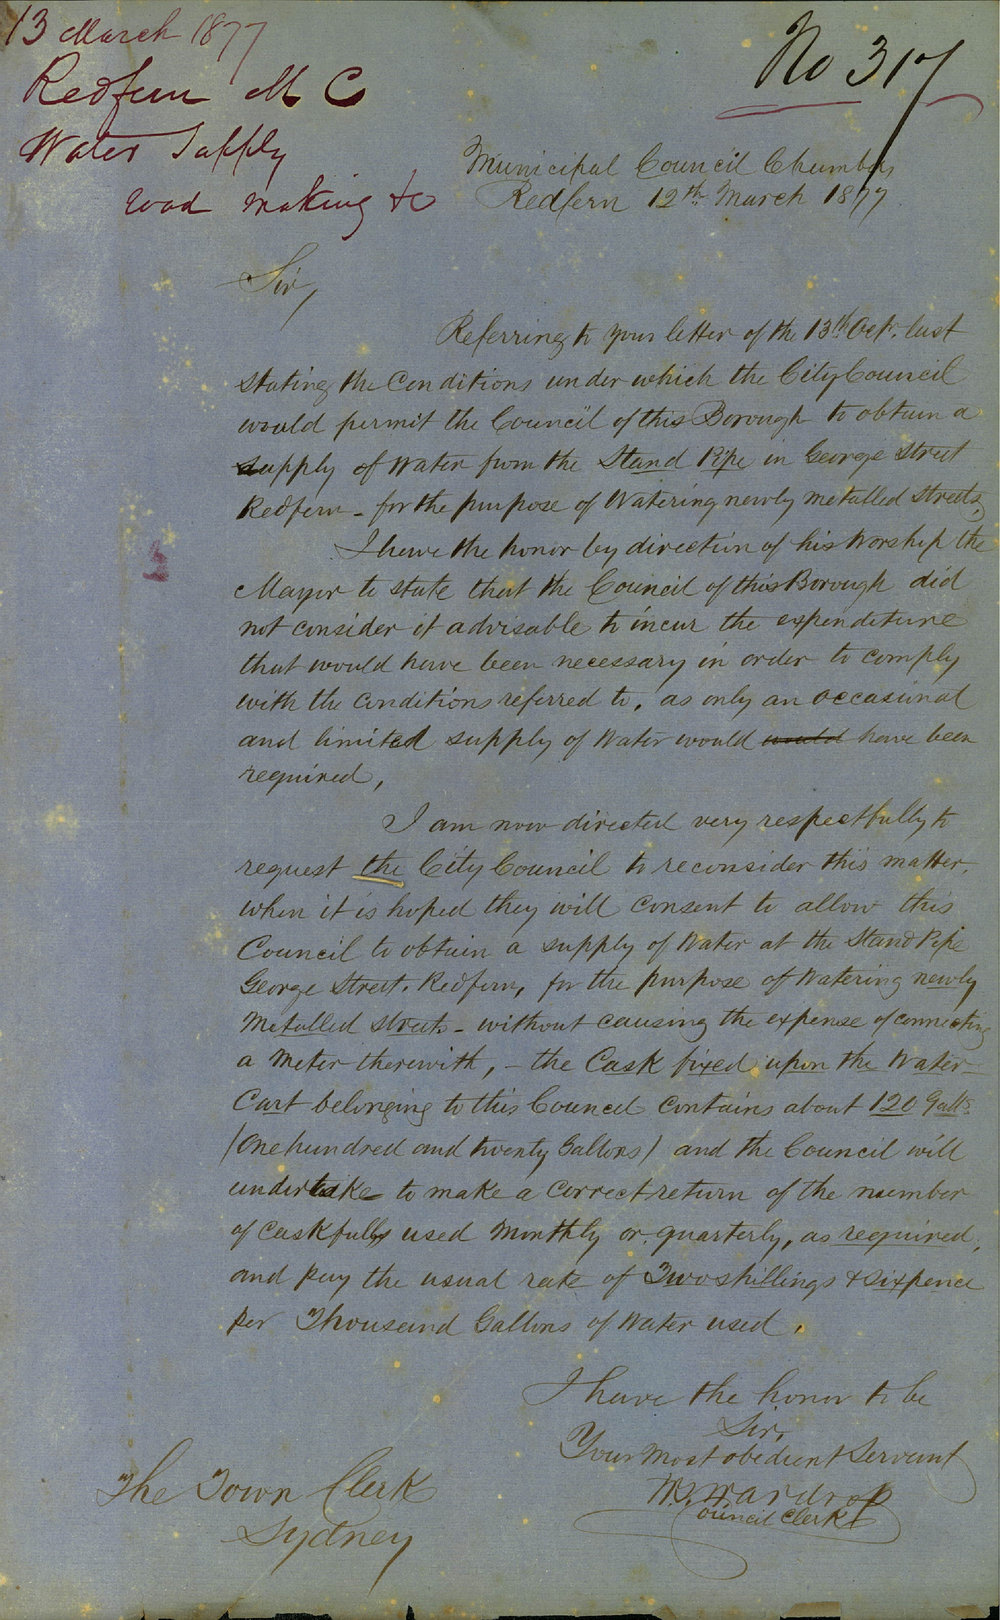 13 March 1877
Redfern M C
Water Supply
road making &c
No 317
Municipal Council Chambers
Redfern 12th March 1877
Sir,
Referring to your letter of the 13th Octr. last
stating the Conditions under which the City Council
would permit the Council of this Borough to obtain a
supply of Water from the Stand Pipe in George Street
Redfern - for the purpose of Watering newly metalled Streets,
I have the honor by direction of his Worship the
Mayor to state that the Council of this Borough did
not consider it advisable to incur the expenditure
that would have been necessary in order to comply
with the Conditions referred to, as only an occasional
and limited supply of Water would would have been
required,
I am now directed very respectfully to
request the City Council to reconsider this matter,
when it is hoped they will consent to allow this
Council to obtain a supply of Water at the Stand Pipe
George Street, Redfern, for the purpose of Watering newly
Metalled streets - without causing the expense of connecting
a Meter therewith, - the Cask fixed upon the Water-
Cart belonging to this Council contains about 120 Galls
(One hundred and twenty Gallons) and the Council will
undertake to make a correct return of the number
of Caskfulls used Monthly or quarterly, as required,
and pay the usual rate of Two shillings & sixpence
per Thousand Gallons of Water used.
I have the honor to be
Sir,
Your most obedient Servant
W. Wardrop
Council Clerk
The Town Clerk
Sydney